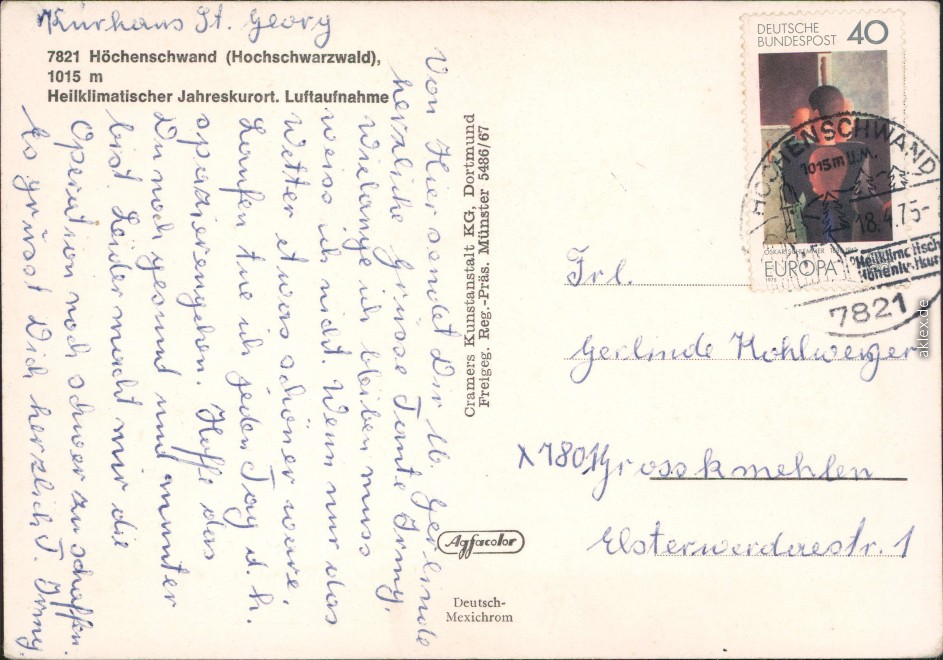 Kurhaus St. Georg
7821 Höchenschwand (Hochschwarzwald),
1015 m
Heilklimatischer Jahreskurort. Luftaufnahme
Von Hier sendet Dir lb. Gerlinde
herzliche Grüsse Tante Irmy.
Wielange ich bleiben muss
weiss ich nicht. Wenn nur das
Wetter etwas schöner wäre.
Laufen tue ich jeden Tag d. h.
spazierengehen. Hoffe das
Du noch gesund und munter
bist. Leider macht mir die
Operation noch schwer zu schaffen.
Es grüsst Dich herzlich T. Irmy.
Cramers Kunstanstalt KG, Dortmund
Freigeg. Reg.-Präs. Münster 5486/67
Agfacolor
Deutsch-
Mexichrom
DEUTSCHE
BUNDESPOST 40
OSKAR SCHLEMMER
EUROPA
HÖCHENSCHWAND
1015 m ü.M.
18.4.75-
Heilklimatisch
Höhenluftkur
7821
Frl.
Gerlinde Kohlweyer
X7801 Grosskmehlen
Elsterwerdaestr. 1
akleX.de